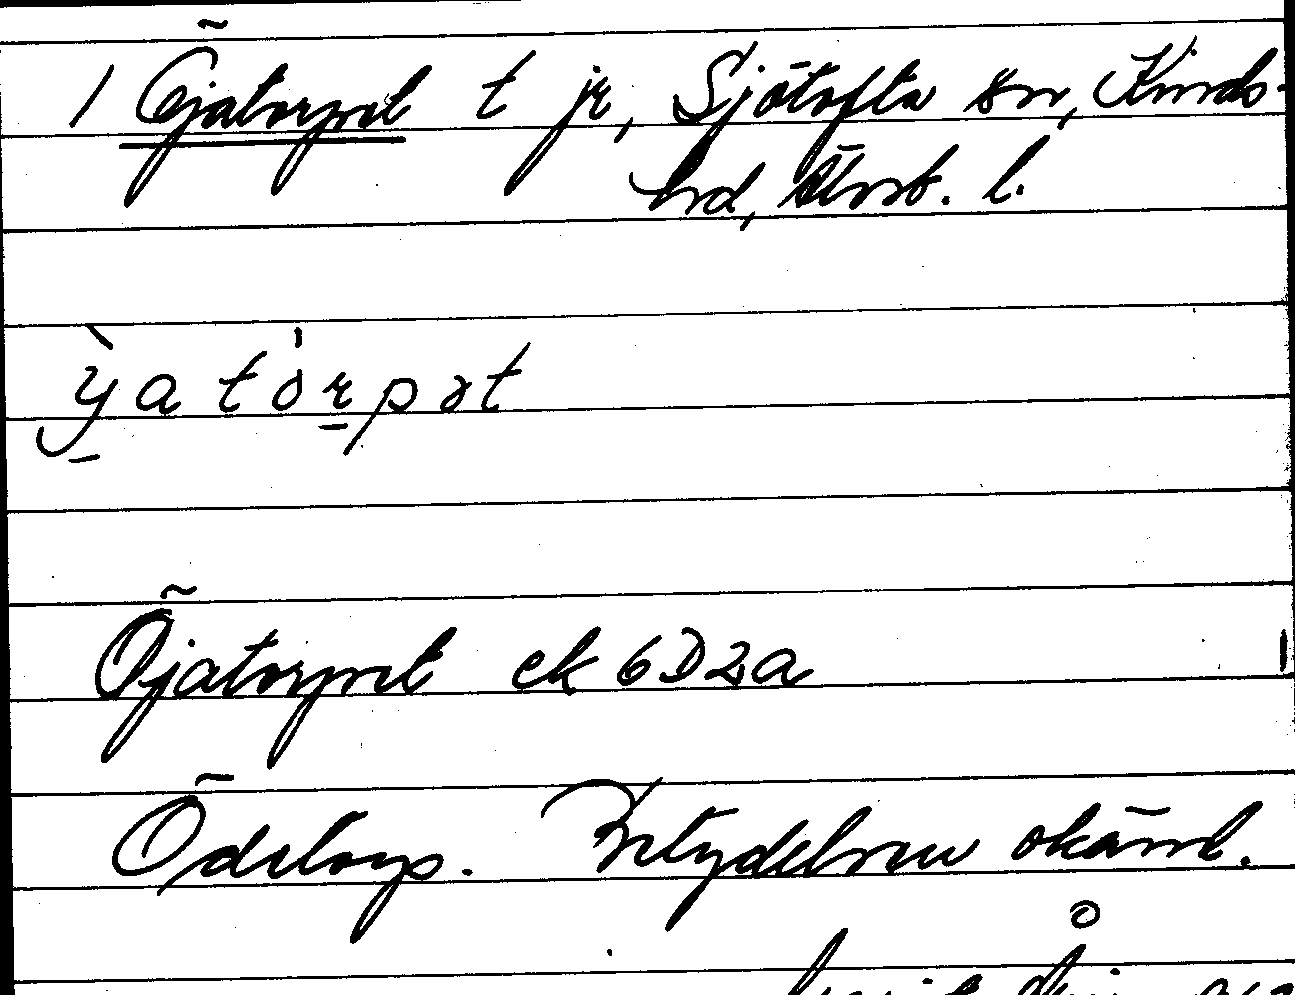 1 Öjatorpet t jr, Sjötofta sn, Kinds-
hd, Älvsb. l.
ỳ̠atȯr̠pət
Öjatorpet ek 6D2a
Ödetorp. Betydelsen okänd.